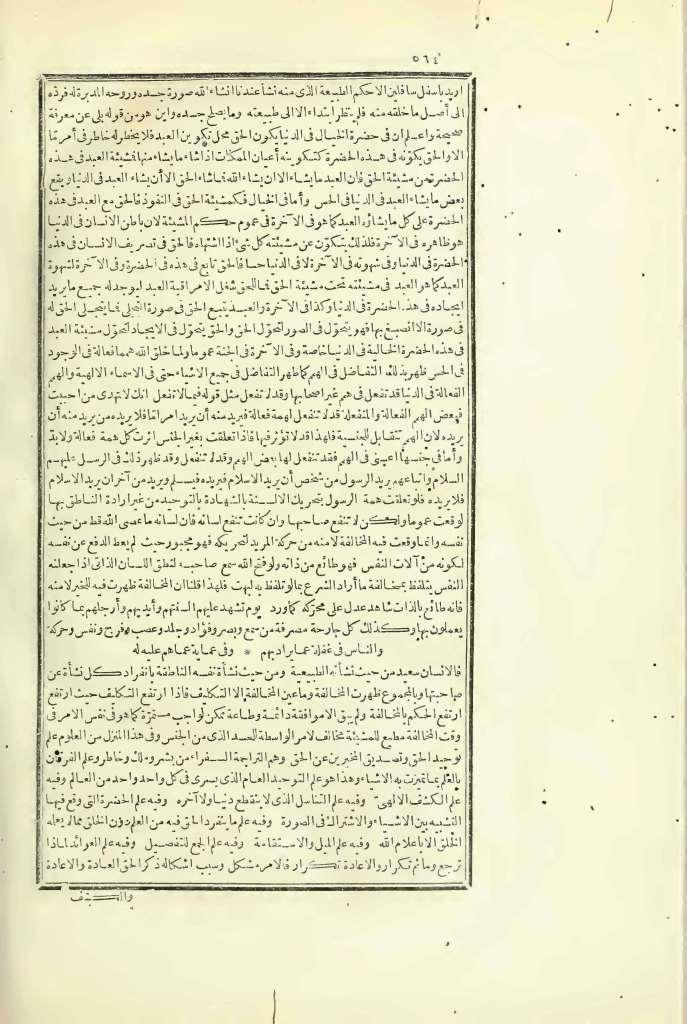 ٥٦٤
اريد باسفل سافلين الا حكم الطبيعة الذى منه نشأ عندنا انشاء الله صورة جسده وروحه المدبرة له فردّه
الى أصل ما خلقه منه فلم ينظر ابتداء الا الى طبيعته وما يصلح جسده وأين هو من قوله بلى عن معرفة
صحيحة واعلم ان فى حضرة الخيال فى الدنيا يكون الحق محل تكوين العبد فلا يخطر له خاطر فى أمر مّا
الا والحق يكوّنه فى هذه الحضرة كتكوينه أعيان الممكنات اذا شاء ما يشاء منها فمشيئة العبد فى هذه
الحضرة من مشيئة الحق فان العبد ما يشاء الا ان يشاء الله فما شاء الحق الا أن يشاء العبد فى الدنيا ويقع
بعض ما يشاء العبد فى الدنيا فى الحس وأما فى الخيال فكمشيئة الحق فى النفوذ فالحق مع العبد فى هذه
الحضرة على كل ما يشاؤه العبد كما هو فى الآخرة فى عموم حكم المشيئة لان باطن الانسان فى الدنيا
هو ظاهره فى الآخرة فلذلك يتكوّن عن مشيئته كل شئ اذا اشتهاه فالحق فى تصريف الانسان فى هذه
الحضرة فى الدنيا وفى شهوته فى الآخرة لا فى الدنيا حسا فالحق تابع فى هذه فى الحضرة وفى الآخرة لشهوة
العبد كما هو العبد فى مشيئته تحت مشيئة الحق فما للحق شغل الا مراقبة العبد ليوجد له جميع ما يريد
ايجاده فى هذه الحضرة فى الدنيا وكذا فى الآخرة والعبد يتبع الحق فى صورة التجلى فما يتجلى الحق له
فى صورة الا انصبغ بها فهو يتحوّل فى الصور لتحوّل الحق والحق يتحوّل فى الايجاد لتحوّل مشيئة العبد
فى هذه الحضرة الخيالية فى الدنيا خاصة وفى الآخرة فى الجنة عموما ولما خلق الله همما فعالة فى الوجود
فى الحس ظهر بذلك التفاضل فى الهمم كما ظهر التفاضل فى جميع الاشياء حتى فى الاسماء الالهية والهمم
الفعالة فى الدنيا قد تفعل فى همم غير اصحابها وقد لا تفعل مثل قوله فيما لا تفعل انك لا تهدى من احببت
فبعض الهمم الفعالة والمنفعلة قد لا تنفعل لهمة فعالة فيريد منه أن يريد امرا مّا فلا يريده من يريد منه أن
يريده لان الهمم تتقابل للجنسية فلهذا قد لا تؤثر فيها فاذا تعلقت بغير الجنس اثرت كل همة فعالة ولا بدّ
وأما فى جنسها اعنى فى الهمم فقد تنفعل لها بعض الهمم وقد لا تنفعل وقد ظهر ذلك فى الرسل عليهم
السلام واتباعهم يريد الرسول من شخص أن يريد الاسلام فيريده فيسلم ويريد من آخر ان يريد الاسلام
فلا يريده فلو تعلقت همة الرسول بتحريك الالسنة بالشهادة بالتوحيد من غير ارادة الناطق بها
لوقعت عموما ولكن لا تنفع صاحبها وان كانت تنفع لسانه فان لسانه ما عصى الله قط من حيث
نفسه وانما وقعت فيه المخالفة لا منه من حركة المريد لتحريكه فهو مجبور حيث لم يعط الدفع عن نفسه
لكونه من آلات النفس فهو طائع من ذاته ولو فتح الله سمع صاحبه لنطق اللسان الذاتى اذا جعلته
النفس يتلفظ بمخالفة ما أراد الشرع بما لو تلفظ به لبهت فلهذا قلنا ان المخالفة ظهرت فيه للجبر لا منه
فانه طائع بالذات شاهد عدل على محرّكه كما ورد يوم تشهد عليهم السنتهم وأيديهم وأرجلهم بما كانوا
يعملون بها وكذلك كل جارحة مصرفة من سمع وبصر وفؤاد وجلد وعصب وفرج ونفس وحركة
والناس فى غفلة عما يراد بهم * وفى عماية عما هم عليه له
فالانسان سعيد من حيث نشأته الطبيعية ومن حيث نشأة نفسه الناطقة بانفراد كل نشأة عن
صاحبتها وبالمجموع ظهرت المخالفة وما عين المخالفة الا التكليف فاذا ارتفع التكليف حيث ارتفع
ارتفع الحكم بالمخالفة ولم يبق الا موافقة دائمة وطاعة ممكن لواجب مستمرّة كما هو فى نفس الامر فى
وقت المخالفة مطيع للمشيئة مخالف لامر الواسطة للحسد الذى من الجنس وفى هذا المنزل من العلوم علم
توحيد الحق وتصديق المخبرين عن الحق وهم التراجمة السفراء من بشر وملك وخاطر وعلم الفرقان
بالعلم بما تميزت به الاشياء وهذا هو علم التوحيد العام الذى يسرى فى كل واحد واحد من العالم وفيه
علم الكشف الالهىّ وفيه علم التناسل الذى لا ينقطع دنيا ولا آخرة وفيه علم الحضرة التى وقع فيها
التشبيه بين الاشياء والاشتراك فى الصورة وفيه علم ما يتفرد الحق فيه من العلم دون الخلق مما لا يعلمه
الخلق الا باعلام الله وفيه علم الميل والاستقامة وفيه علم الجمع للتفصيل وفيه علم العوائد لماذا
ترجع وما ثم تكرار والاعادة تكرار فالامر مشكل وسبب اشكاله ذكر الحق العادة والاعادة
والكشف